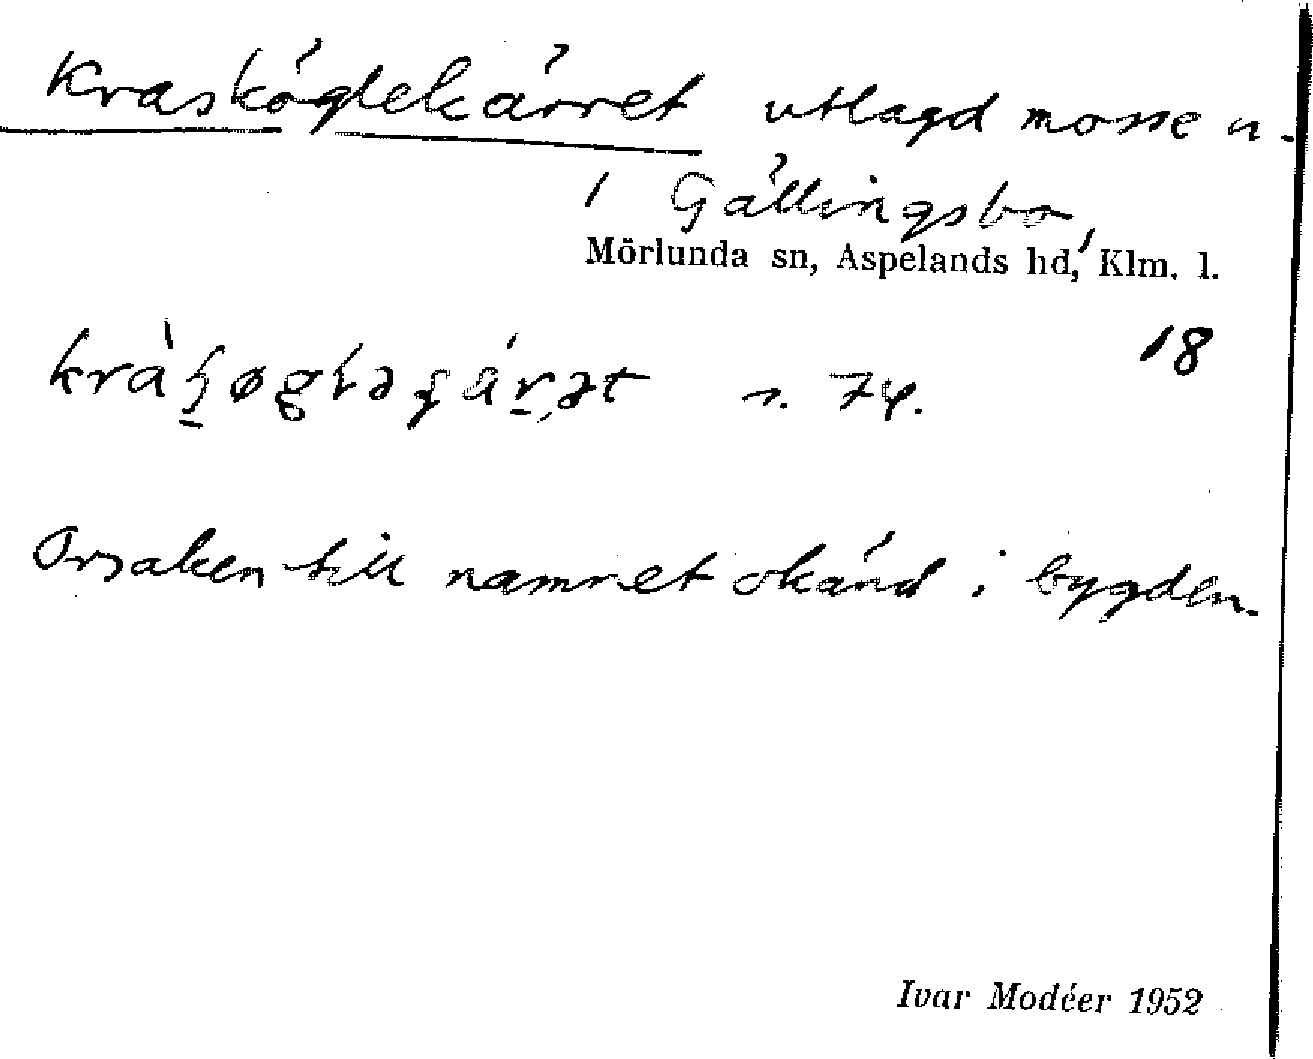 Krasköglekärret utlagd mosse n.
i Gällingsbo,
Mörlunda sn, Aspelands hd, Klm. l.
18
s. 74.
Orsaken till namnet okänd i bygden.
Ivar Modéer 1952